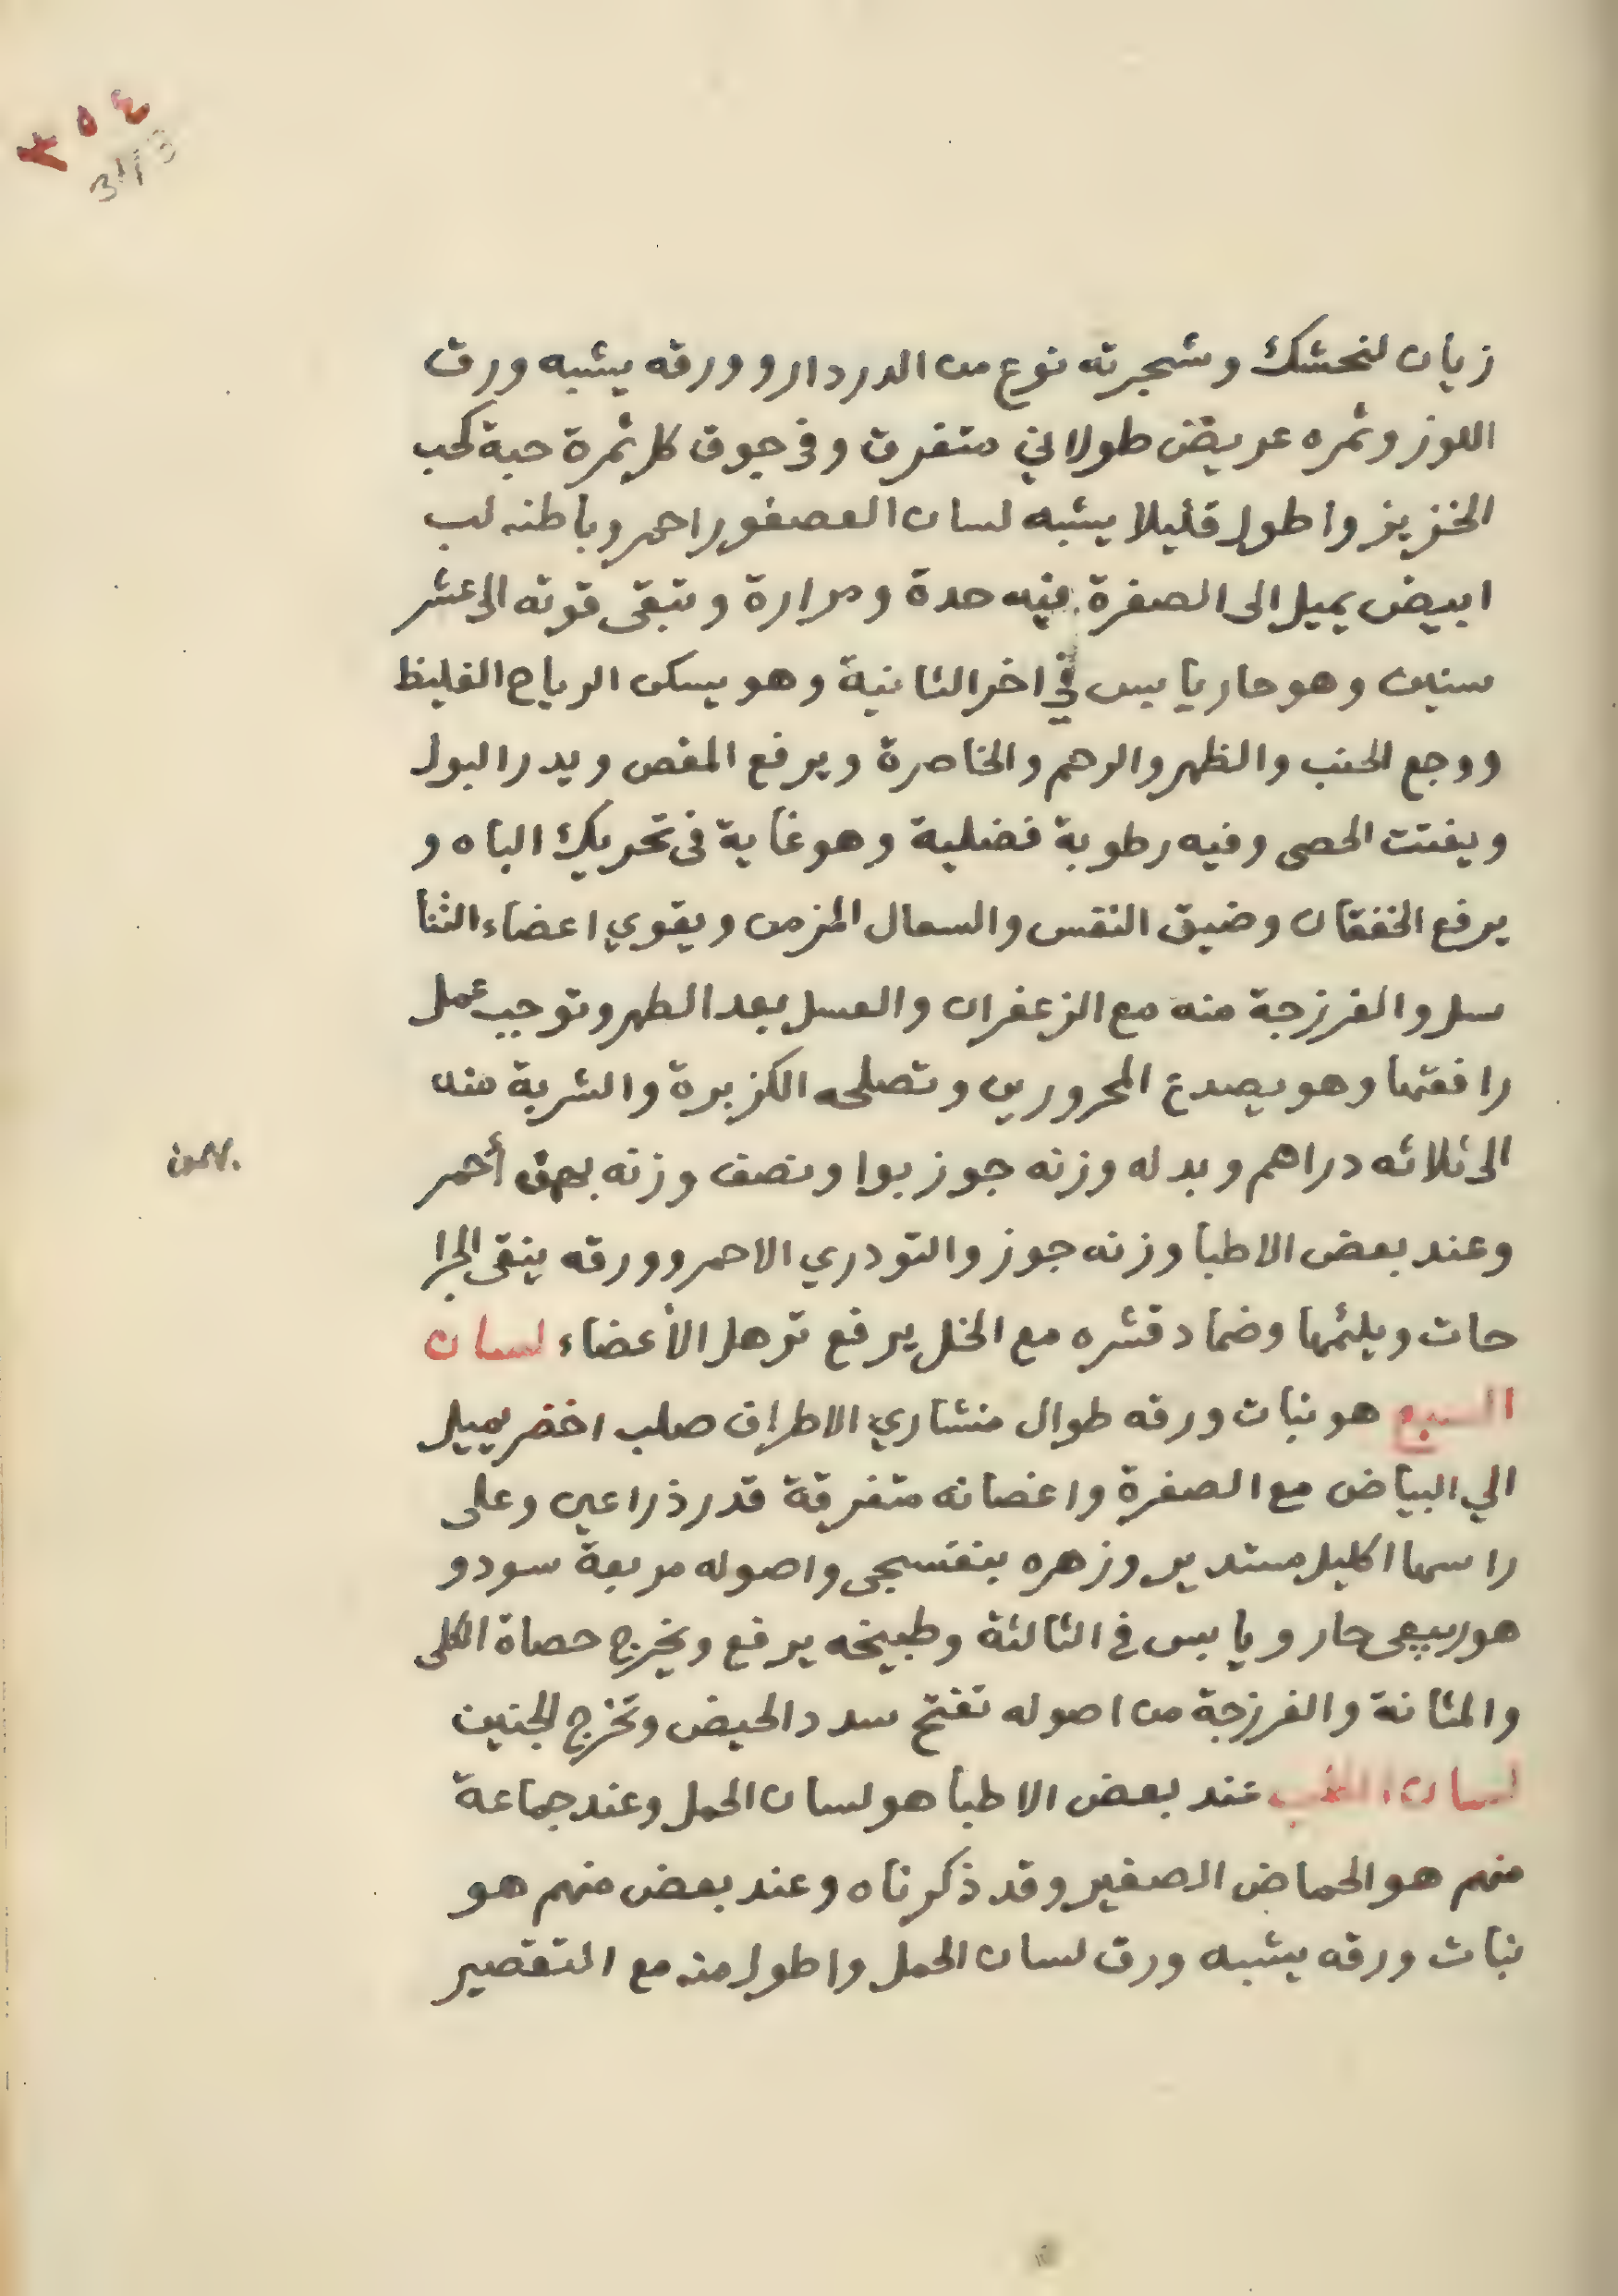 ٣٥٤
313
زيان لنحشك وشجرته نوع من الدردار وورقه يشبه ورق
اللوز وثمره عريض طولاني متفرق وفى جوف كل ثمرة حبة كحب
الخزيز واطول قليلا يشبه لسان العصفور احمر وباطنه لب
ابيض يميل الى الصفرة فيه حدة ومرارة وتبقى قوته الى عشر
سنين وهو حار يابس في اخر الثانية وهو يسكن الرياح الغليظ
ووجع الجنب والظهر والرحم والخاصرة ويرفع المغص ويدر البول
ويفتت الحصى وفيه رطوبة فضلية وهو غاية فى تحريك الباه و
يرفع الخفقان وضيق النفس والسعال المزمن ويقوي اعضاء التنا
سل والفرزجة منه مع الزعفران والعسل بعد الطهر وتوجب عمل
رافعتها وهو يصدع المحرورين وتصلحه الكزبرة والشربة منه
الى ثلاثه دراهم وبدله وزنه جوز بوا ونصف وزنه بهمن أحمر
بهمن
وعند بعض الاطبا وزنه جوز والتودري الاحمر وورقه ينقى الجرا
حات ويلئمها وضماد قشره مع الخل يرفع ترهل الأعضاء لسان
السبع هو نبات ورقه طوال منشاري الاطراف صلب اخضر يميل
الي البياض مع الصفرة واغصانه متفرقة قدر ذراعين وعلى
راسها اكليل مستدير وزهره بنفسجى واصوله مربعة سود و
هو ربيعى حار ويابس فى الثالثة وطبيخه يرفع ويخرج حصاة الكلى
والمثانة والفرزجة من اصوله تفتح سدد الحيض وتخرج الجنين
لسان الكلب عند بعض الاطبا هو لسان الحمل وعند جماعة
منهم هو الحماض الصغير وقد ذكرناه وعند بعض منهم هو
نبات ورقه يشبه ورق لسان الحمل واطول منه مع التقصير